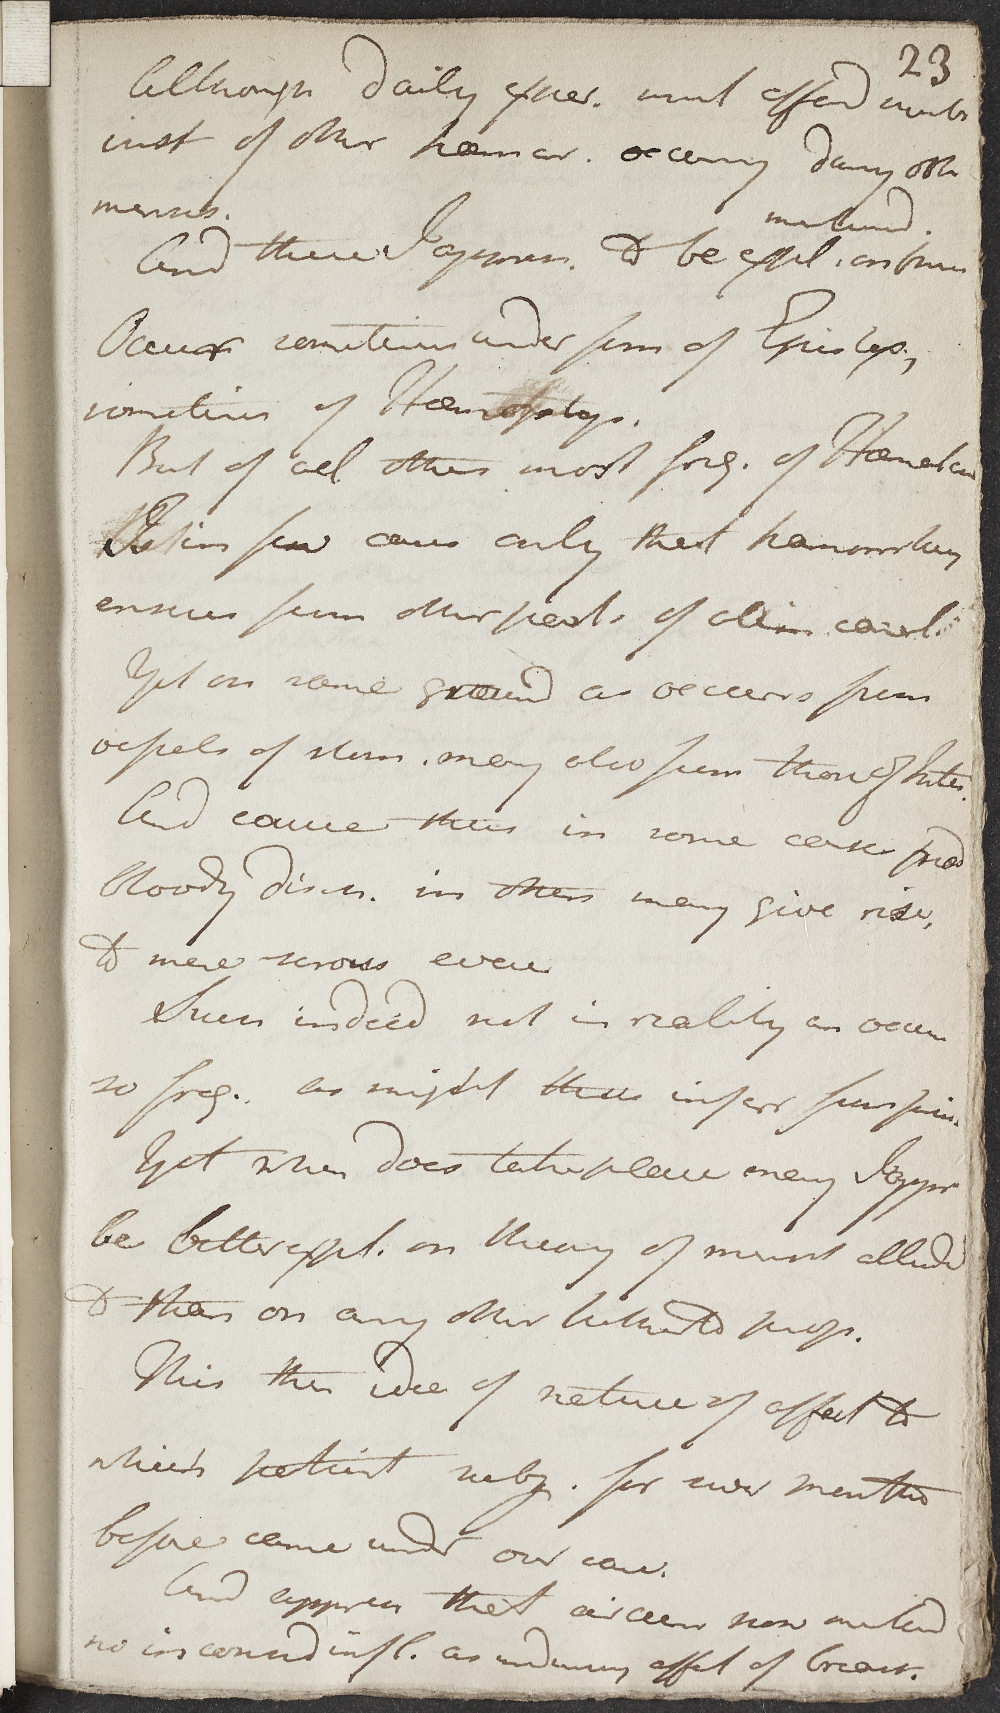 23
Although daily exper. must afford
inst of other hæmor. occurring during obs
menses.
mentiond.
And these I apprehen. to be expl. on
Occur sometimes under form of Epistax,
sometimes of Hæmoptys.
But of all others most freq. of
In few cases only that hæmorrhag
ensues from other parts of alim. canal.
Yet on same ground as occurs from
vessels of stom. may also from those of Intes.
And cause thus in some cases prod
bloody disch. in others may give rise,
to mere serous evacu
Such indeed not in reality an occur
so freq. as might thus infer
Yet when does take place may I appr
be better expl. on theory of menst allud
to than on any other hitherto prop.
This then idea of nature of affect to
which patient subj. for sever months
before came under our care.
And apprehen that circum now
no inconsid infl. as inducing affect of breast.